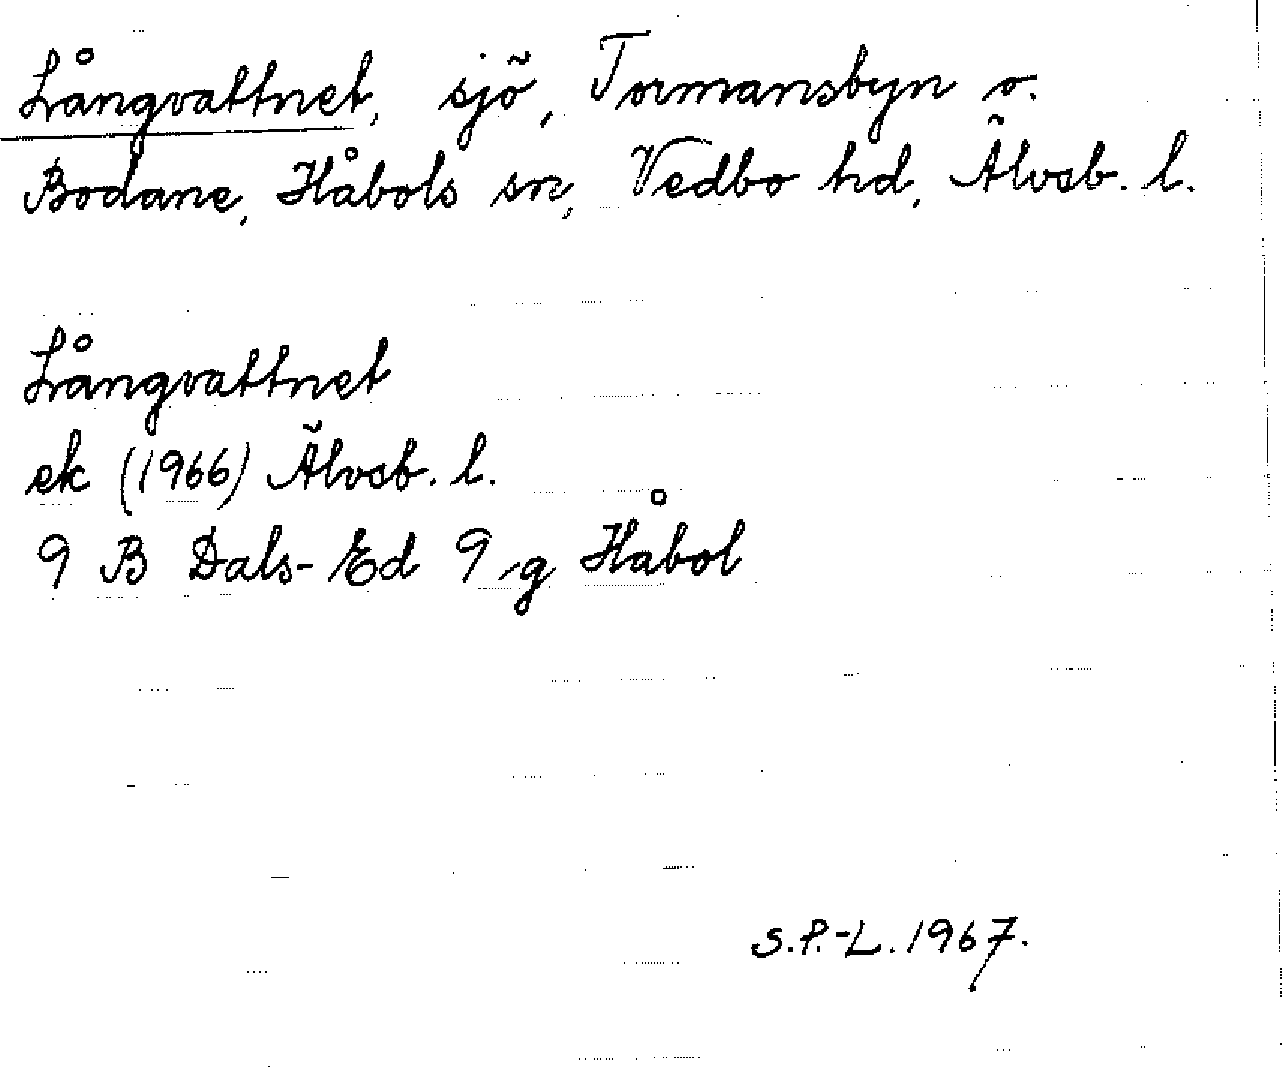 Långvattnet, sjö, Tormansbyn o.
Bodane, Håbols sn, Vedbo hd, Älvsb. l.
Långvattnet
ek (1966) Älvsb. l.
9 B Dals-Ed 9 g Håbol
S.P.-L. 1967.